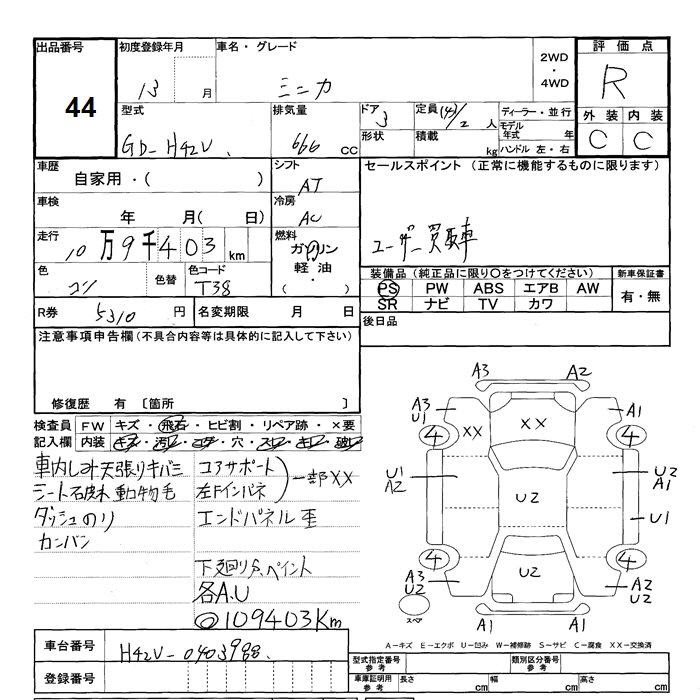 出品番号 初度登録年月 車名・グレード 2WD・4WD 評価点
44 13 月 ミニカ R
型式 排気量 ドア 3 定員(4)/2 人 ディーラー・並行 外装 内装
GD-H42V 660 CC 形状 積載 kg モデル年式 年 C C
ハンドル 左・右
車歴 シフト セールスポイント (正常に機能するものに限ります)
自家用・( ) AT
車検 冷房
年 月( 日) AC
走行 燃料 ユーザー買取車
10万9千403km ガソリン
軽油
・
( )
色 色替 色コード 装備品 (純正品に限り○をつけてください) 新車保証書
T38 PS PW ABS エアB AW 有・無
SR ナビ TV カワ
R券 5310 円 名変期限 月 日 後日品
注意事項申告欄(不具合内容等は具体的に記入して下さい)
修復歴 有 〔箇所 〕
検査員 FW キズ・飛石・ヒビ割・リペア跡・×要
記入欄 内装 キズ・汚レ・コゲ・穴・スレ・キレ・破レ
車内しみ 天張りキバミ
シート破れ 動物毛
ダッシュのり
カンバン
コアサポート
左Fインパネ
一部XX
エンドパネル歪
下廻り穴、ペイント
各A.U
◎109403Km
A3 A2
A3 U1 A1
4 XX XX 4
U1 A2 U2 U2 A1
U1
4 4
A3 U2 U2 A2 U2
スペア A1 A1
A-キズ E-エクボ U-凹み W-補修跡 S-サビ C-腐食 XX-交換済
車台番号 H42V-0403988
登録番号
型式指定番号 参考 類別区分番号 参考
車庫証明用 参考 長さ cm 幅 cm 高さ cm